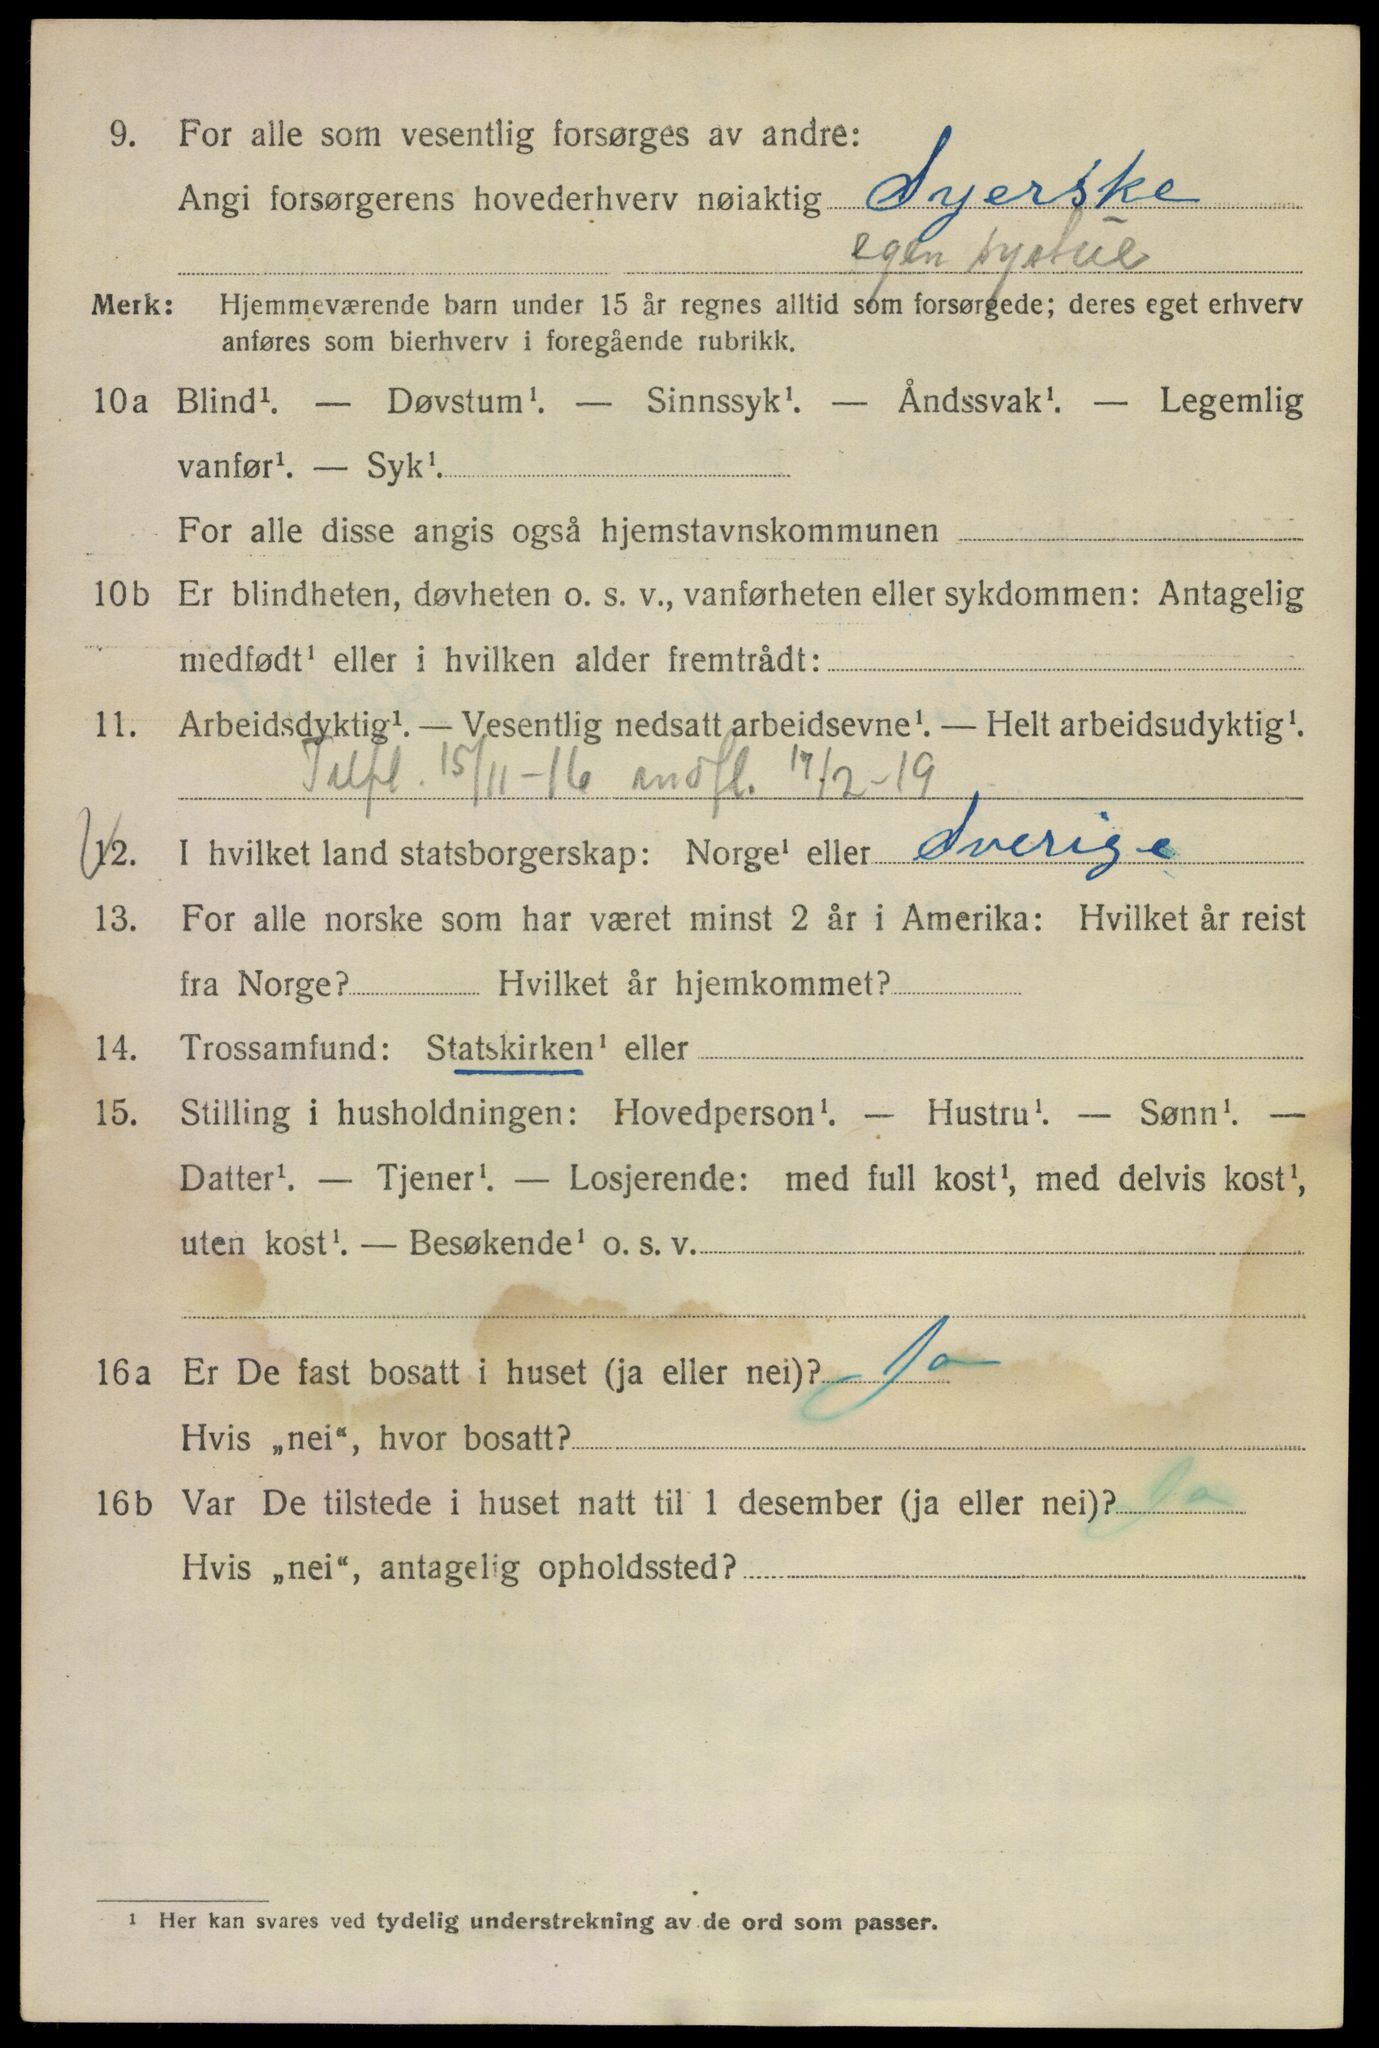 9. For alle som vesentlig forsørges av andre:
Angi forsørgerens hovederhverv nøiaktig Syerske
egen systue
Merk: Hjemmeværende barn under 15 år regnes alltid som forsørgede; deres eget erhverv
anføres som bierhverv i foregående rubrikk.
10a Blind¹. — Døvstum¹. — Sinnssyk¹. — Åndssvak¹. — Legemlig
vanfør¹. — Syk¹.
For alle disse angis også hjemstavnskommunen
10b Er blindheten, døvheten o. s. v., vanførheten eller sykdommen: Antagelig
medfødt¹ eller i hvilken alder fremtrådt:
11. Arbeidsdyktig¹. — Vesentlig nedsatt arbeidsevne¹. — Helt arbeidsudyktig¹.
15/11-16 17/2-19
12. I hvilket land statsborgerskap: Norge¹ eller Sverige
13. For alle norske som har været minst 2 år i Amerika: Hvilket år reist
fra Norge? Hvilket år hjemkommet?
14. Trossamfund: Statskirken¹ eller
15. Stilling i husholdningen: Hovedperson¹. — Hustru¹. — Sønn¹. —
Datter¹. — Tjener¹. — Losjerende: med full kost¹, med delvis kost¹,
uten kost¹. — Besøkende¹ o. s. v.
16a Er De fast bosatt i huset (ja eller nei)? Ja
Hvis „nei“, hvor bosatt?
16b Var De tilstede i huset natt til 1 desember (ja eller nei)? Ja
Hvis „nei“, antagelig opholdssted?
¹ Her kan svares ved tydelig understrekning av de ord som passer.